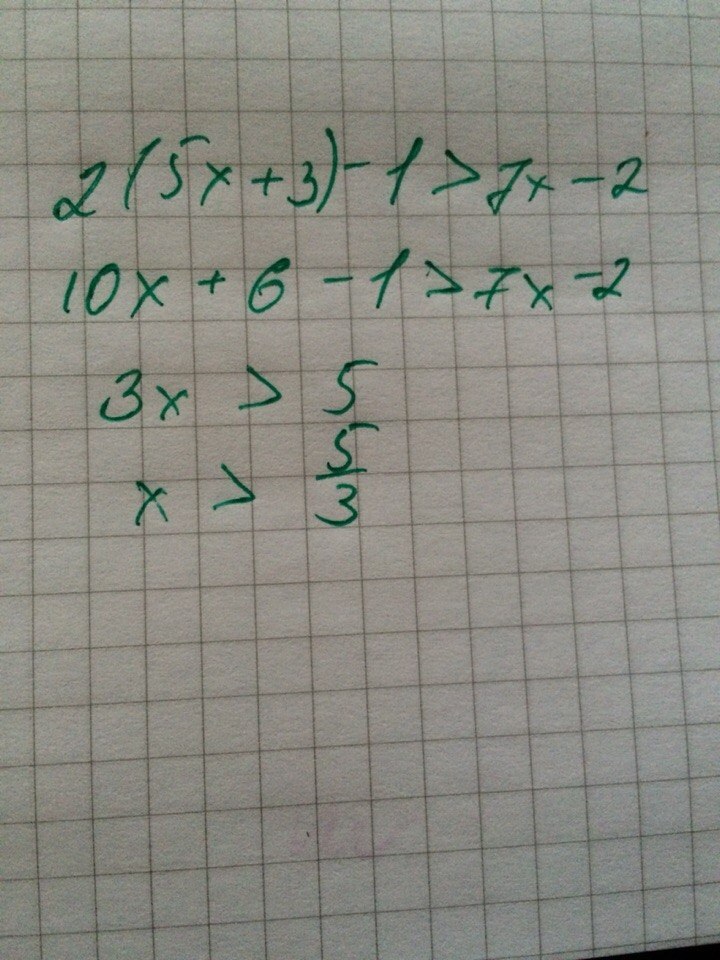 2(5x+3)-1>7x-2
10x+6-1>7x-2
3x > 5
x > 5/3